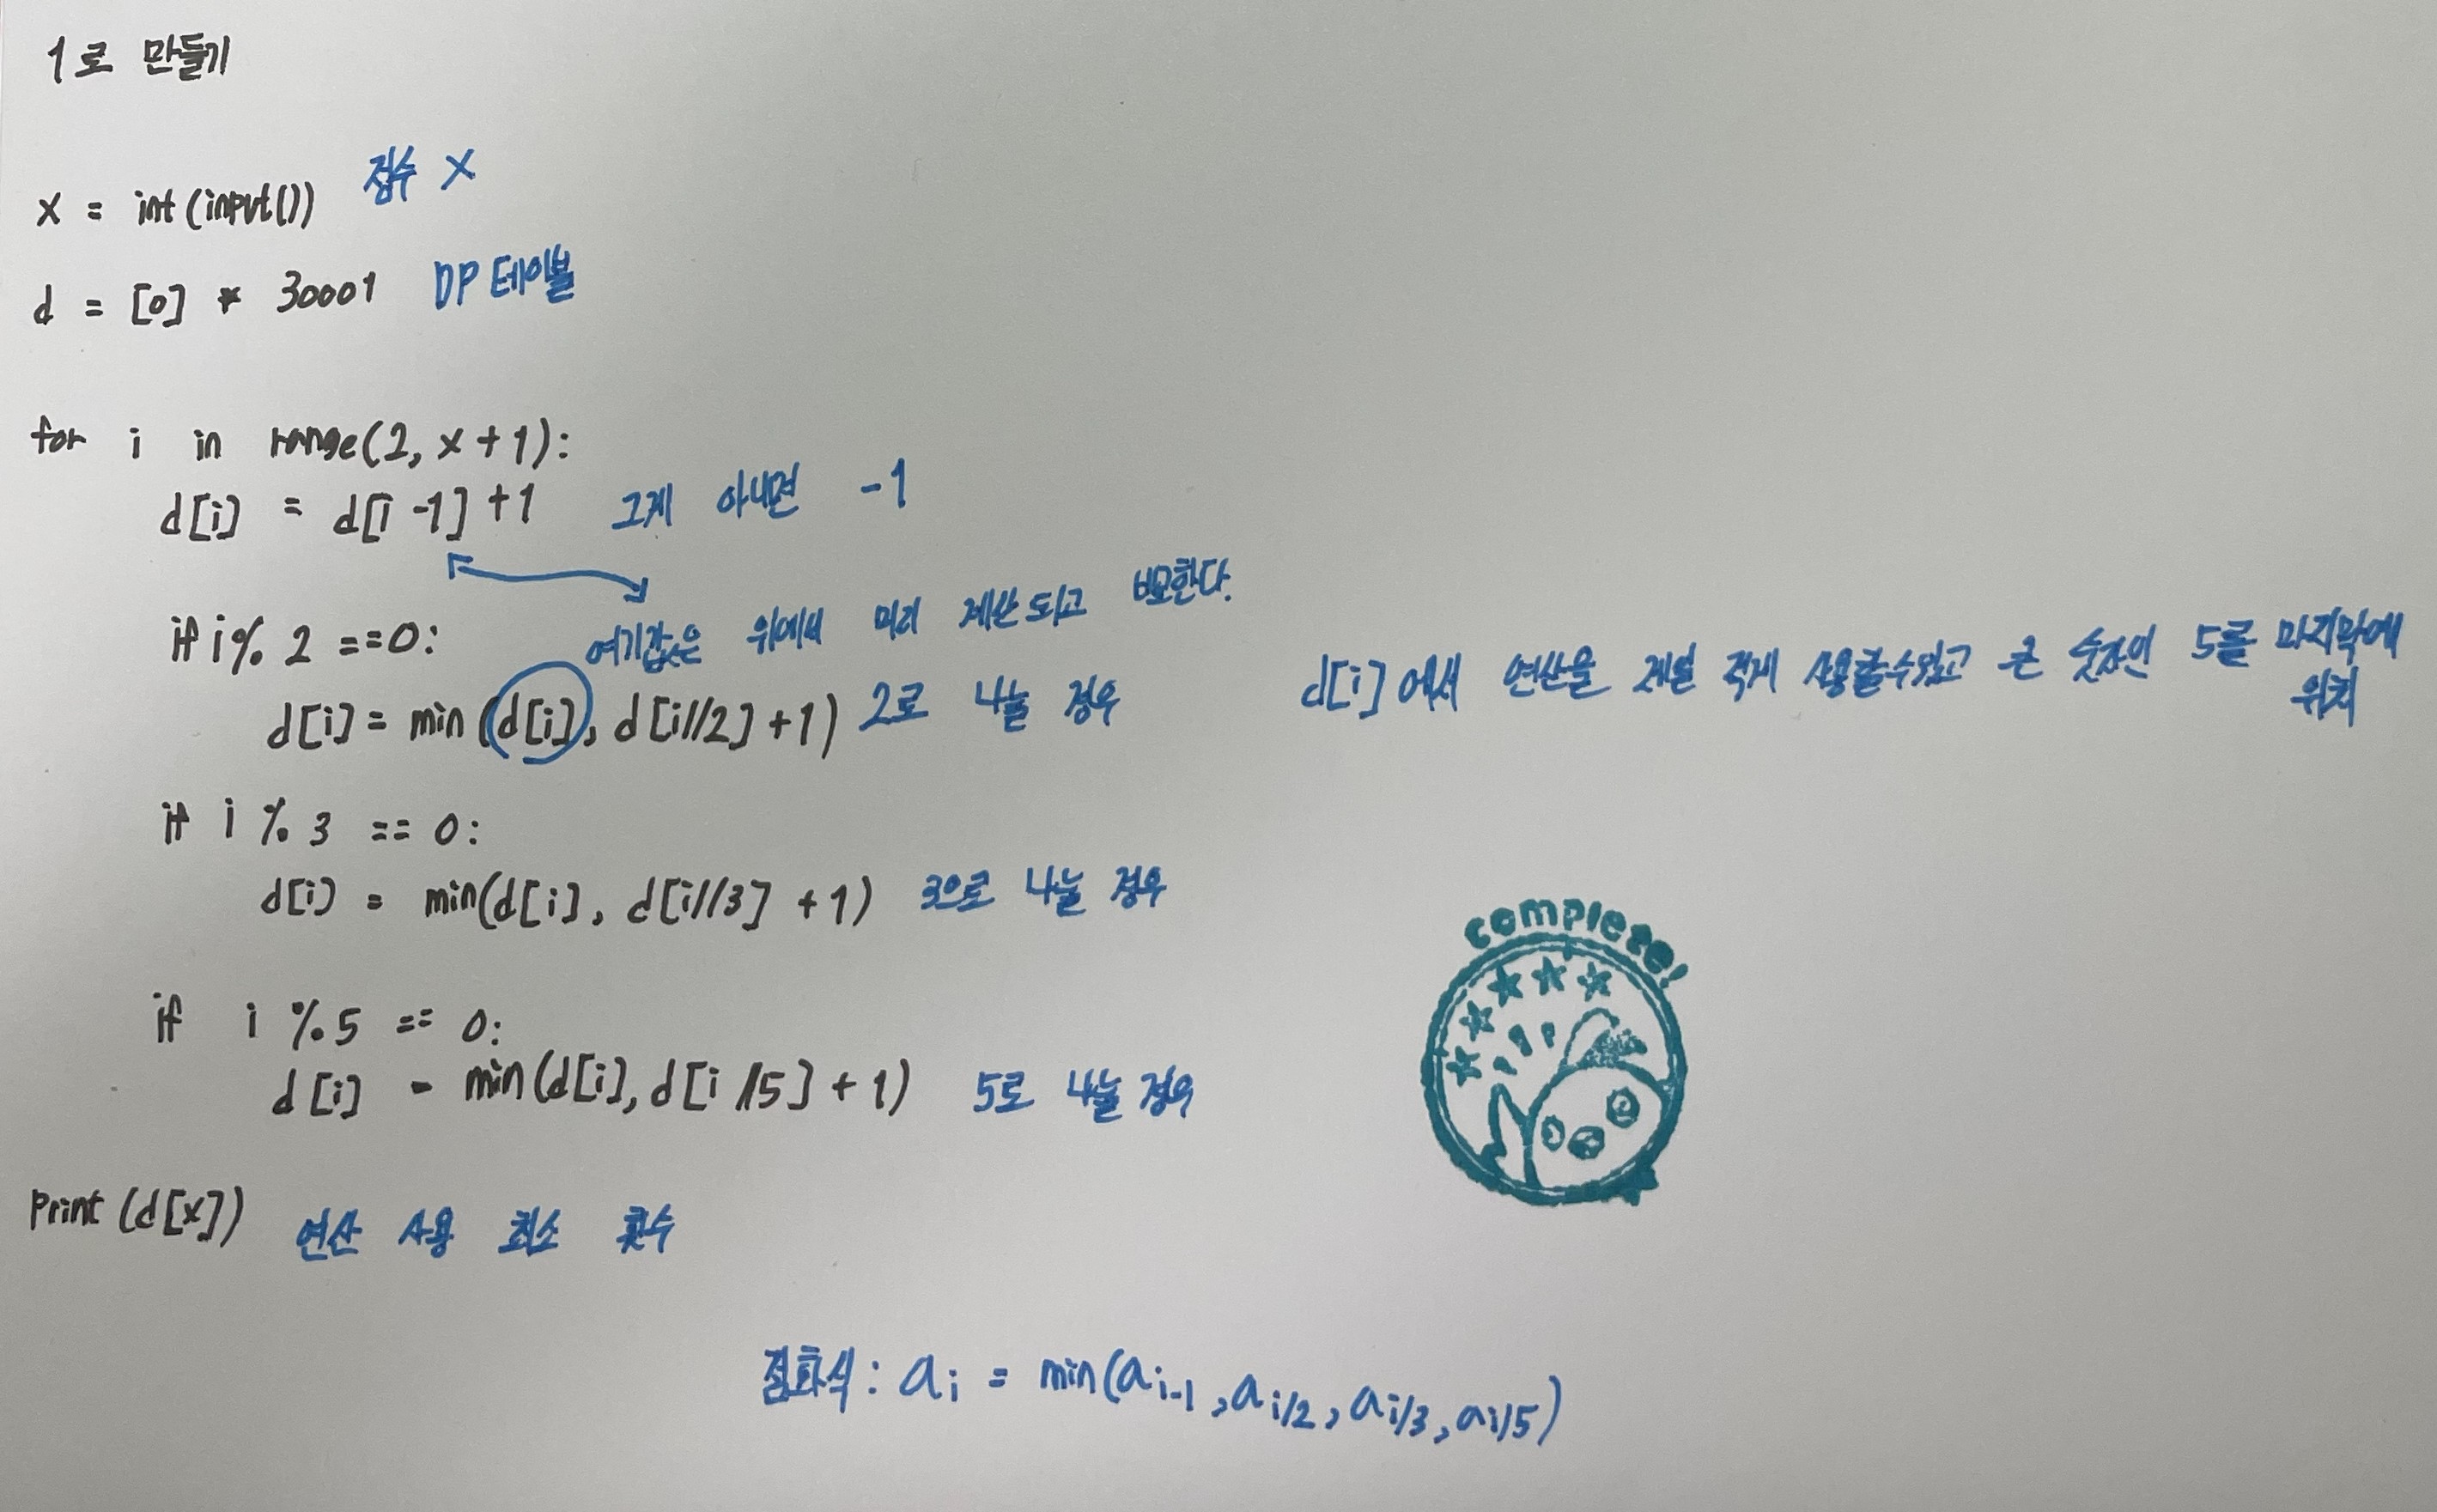 1로 만들기
x = int(input()) 정수 X
d = [0] * 30001 DP 테이블
for i in range(2, x+1):
d[i] = d[i-1]+1 그게 아니면 -1
여기값은 위에서 미리 계산되고 비교한다.
if i% 2 ==0:
d[i] = min(d[i], d[i//2]+1) 2로 나눌 경우
d[i]에서 연산을 제일 적게 사용할수있고 큰 숫자인 5를 마지막에
위치
if i % 3 == 0:
d[i] = min(d[i], d[i//3] +1) 3으로 나눌 경우
if i %5 == 0:
d[i] = min(d[i], d[i//5]+1) 5로 나눌 경우
print(d[x]) 연산 사용 최소 횟수
complete!
점화식: ai = min(ai-1, ai/2, ai/3, ai/5)